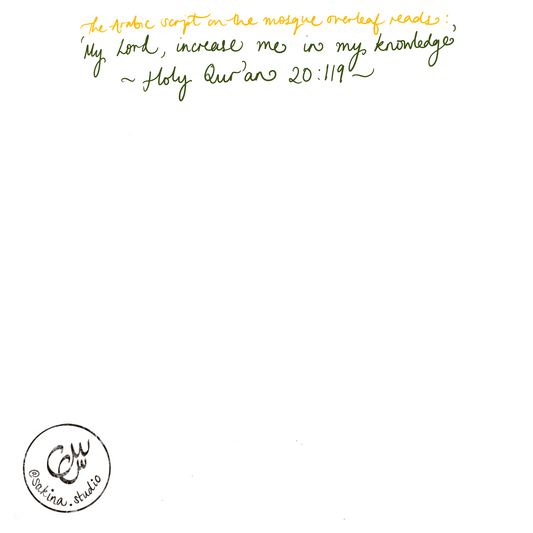 The Arabic script on the mosque overleaf reads:
'My Lord, increase me in my knowledge'
~ Holy Qur'an 20:119 ~
@sakina.studio